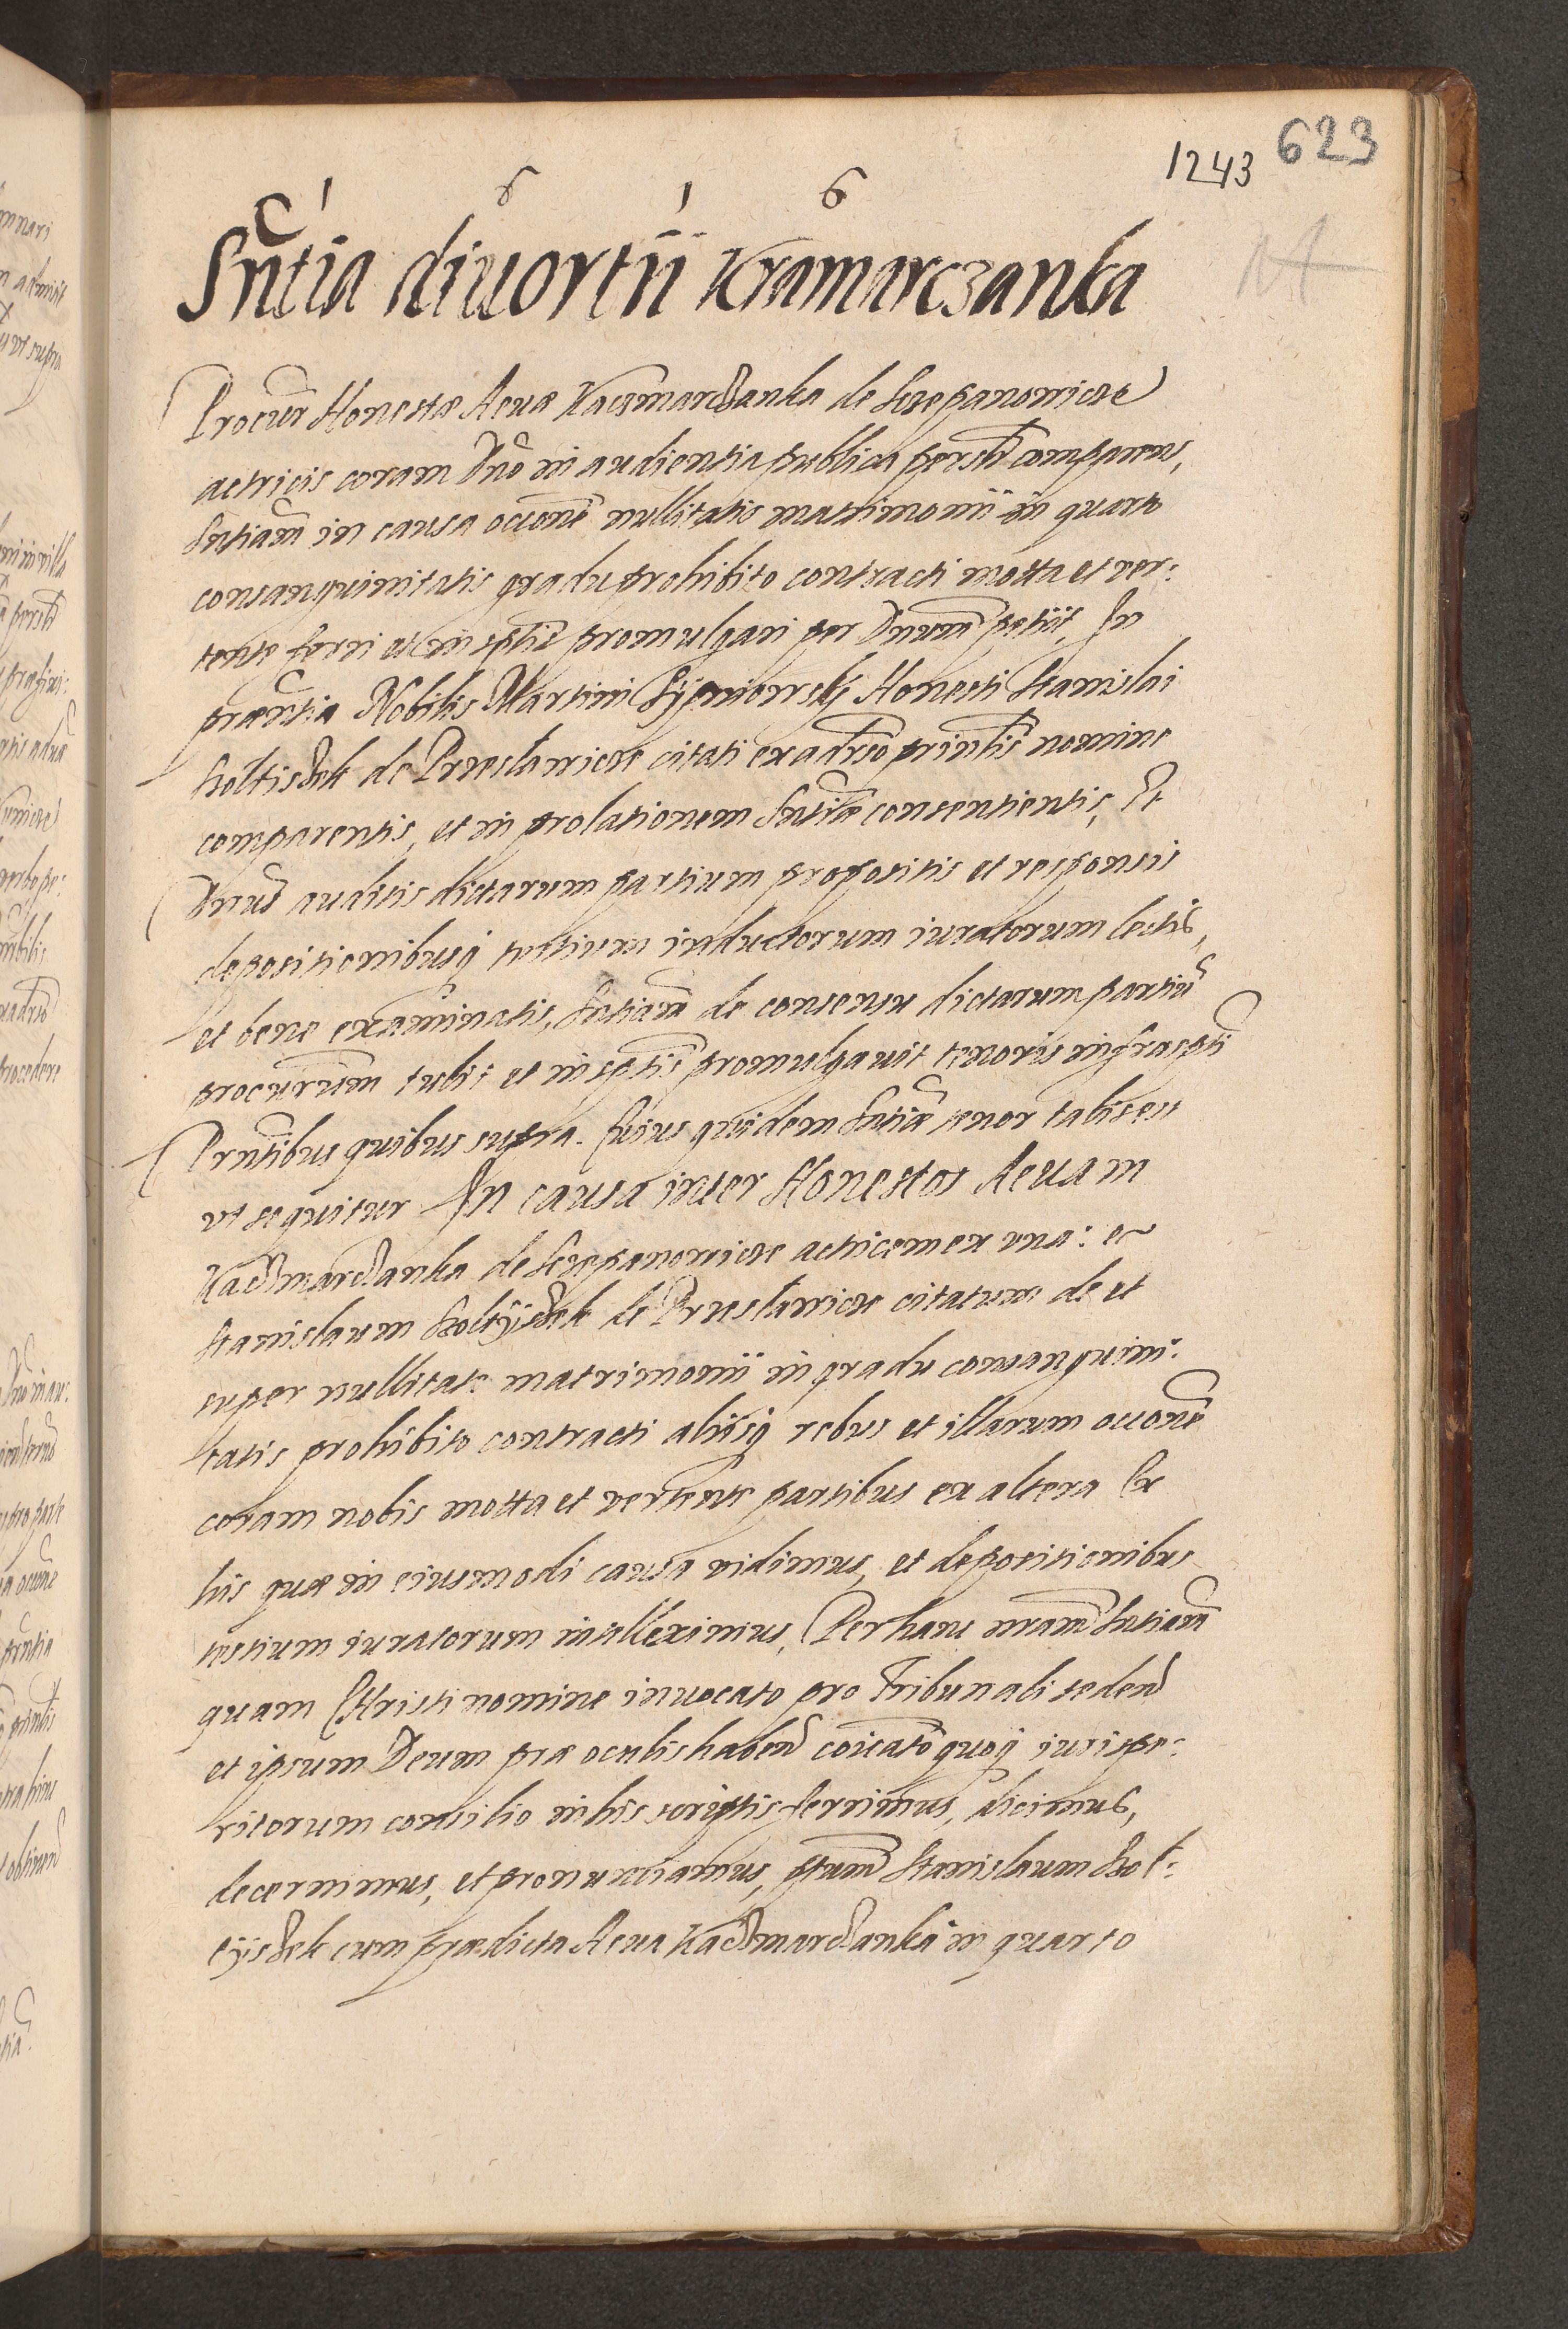 1243 623
1 6 1 6
Sn̄tia diuortii Kramarczanka
Procur̄ Honestæ Aeuæ Kaczmarczanka de Sczepanowicze
actricis coram Dn̄o in audientia publica personl̄r comparens,
Sn̄tiam in causa occōne nullitatis matrimonii in quarto
consanguinitatis gradu prohibito contracti motta et ver:
tente ferri et in sp̄tis promulgari per Dn̄um petiit, In
præn̄tia Nobilis Martini Sypniowsky Honesti Stanislai
Soltissek de Przeslawicze citati ex aduerso prin̄lis nomine
comparentis, et in prolationem Sn̄tiæ consentientis, Et
Dn̄us auditis dictarum partium propositis et responsis
depositionibusq testium inductorum iuratorum lectis,
et bene examinatis, Sn̄tiam de consensu dictarum partiū
procur̄um tulit et in sp̄tis promulgauit tenoris infrasp̄ti
Prn̄tibus quibus supra. Cuius quidem Sn̄tiæ tenor talis est
vt sequitur In causa inter Honestos Aeuam
Kaczmarczanka de Sczepanowicze actricem ex vna: et
Stanislaum Soltyssek de Przeslawicze citatum de et
super nullitate matrimonii in gradu consanguini:
tatis prohibito contracti aliisq rebus et illarum occōne
coram nobis motta et vertente partibus ex altera Ex
his quæ in eiusmodi causa vidimus, et depositionibus
testium iuratorum intelleximus, Per hanc nram̄ Sn̄tiam
quam Christi nomine inuocato pro Tribunali seden̄
et ipsum Deum præ oculis haben̄ coīcato quoq iurispe:
ritorum consilio in his scriptis ferrimus, dicimus,
decernimus, et pronunciamus, p̄tum Stanislaum Sol:
tyssek cum prædicta Aeua Kaczmarczanka in quarto